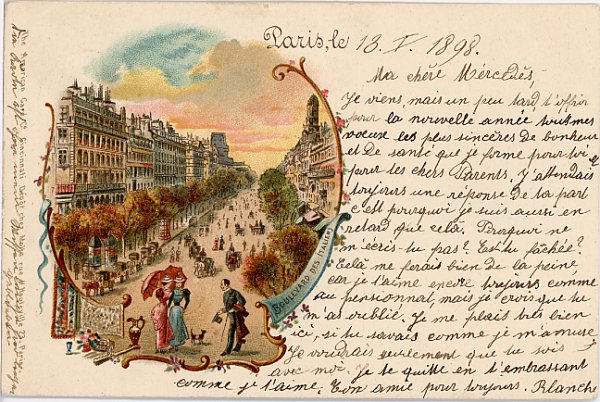 Paris, le 13. I. 1898.
Ma chère Mércédès,
Je viens, mais un peu tard t'offrir
pour la nouvelle année tout mes
voeux les plus sincères de bonheur
et de santé que je forme pour toi
pour tes chers Parents. J'attendais
toujours une réponse de ta part
c'est pourquoi je suis aussi en
retard que celà. Pourquoi ne
m'écris-tu pas? Es-tu fâchée?
Celà me ferais bien de la peine,
car je t'aime encore toujours comme
au pensionnat, mais je crois que tu
m'as oublié. Je me plais très bien
ici, si tu savais comme je m'amuse
Je voudrais seulement que tu sois
avec moi. Je te quitte en t'embrassant
comme je t'aime. Ton amie pour toujours. Blanche
BOULEVARD DES ITALIENS